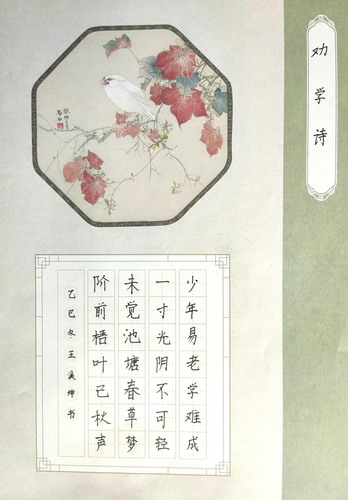 劝学诗
少年易老学难成
一寸光阴不可轻
未觉池塘春草梦
阶前梧叶已秋声
乙巳冬王溪坤书